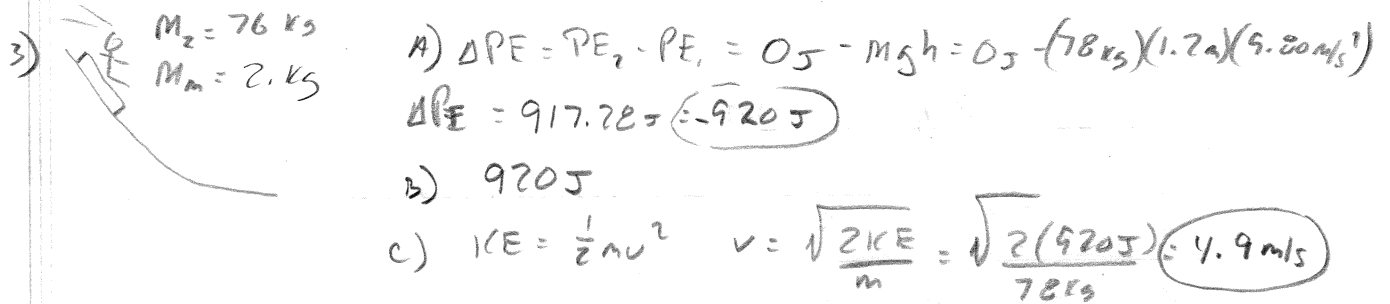 3) M₂ = 76 kg
Mₘ = 2. kg
A) ΔPE = PE₂ - PE₁ = 0J - mgh = 0J - (78 kg)(1.2m)(9.80 m/s²)
ΔPE = 917.28J = -920J
B) 920J
C) KE = ½mv² v = √(2KE/m) = √(2(920J)/78kg) = 4.9 m/s